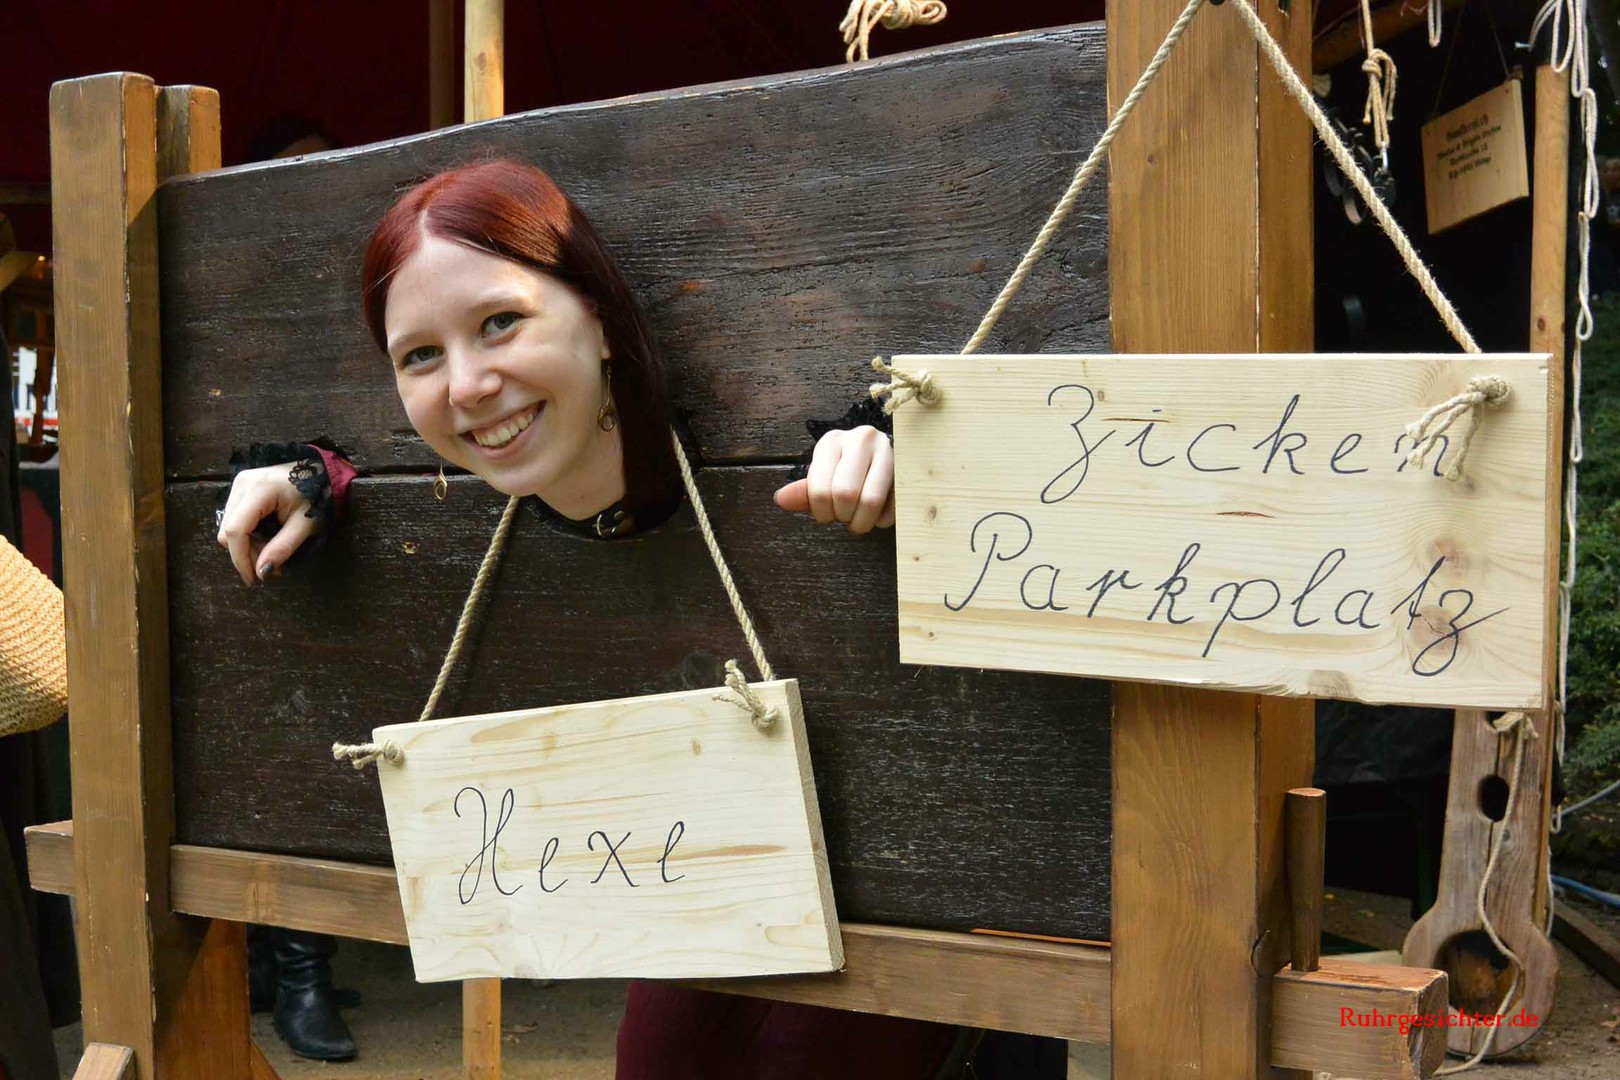 Zicken
Parkplatz
Hexe
Ruhrgesichter.de